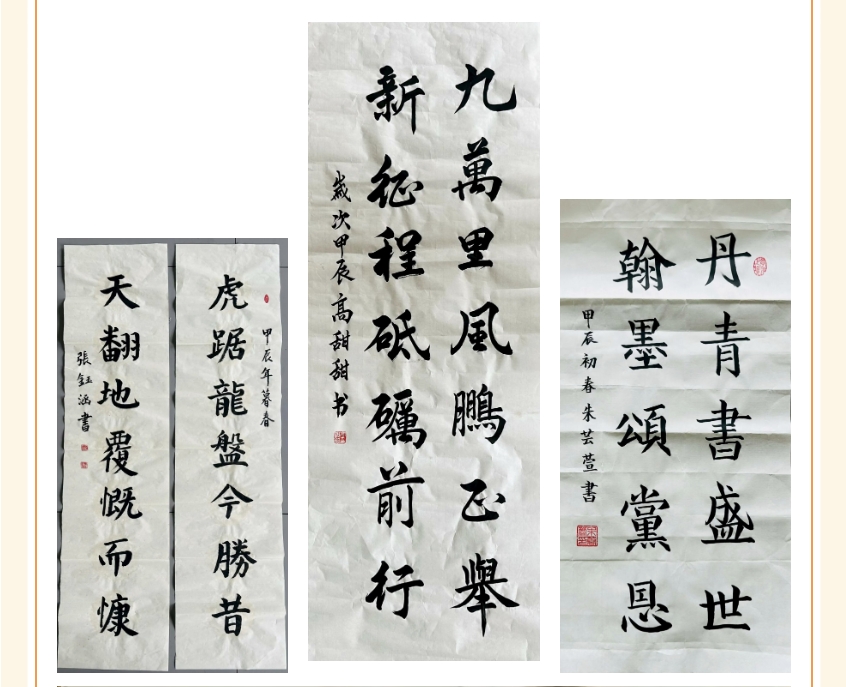 虎踞龍盤今勝昔
甲辰年暮春
天翻地覆慨而慷
張鈺涵書
九萬里風鵬正舉
新征程砥礪前行
歲次甲辰高甜甜书
丹青書盛世
翰墨頌黨恩
甲辰初春朱芸萱書